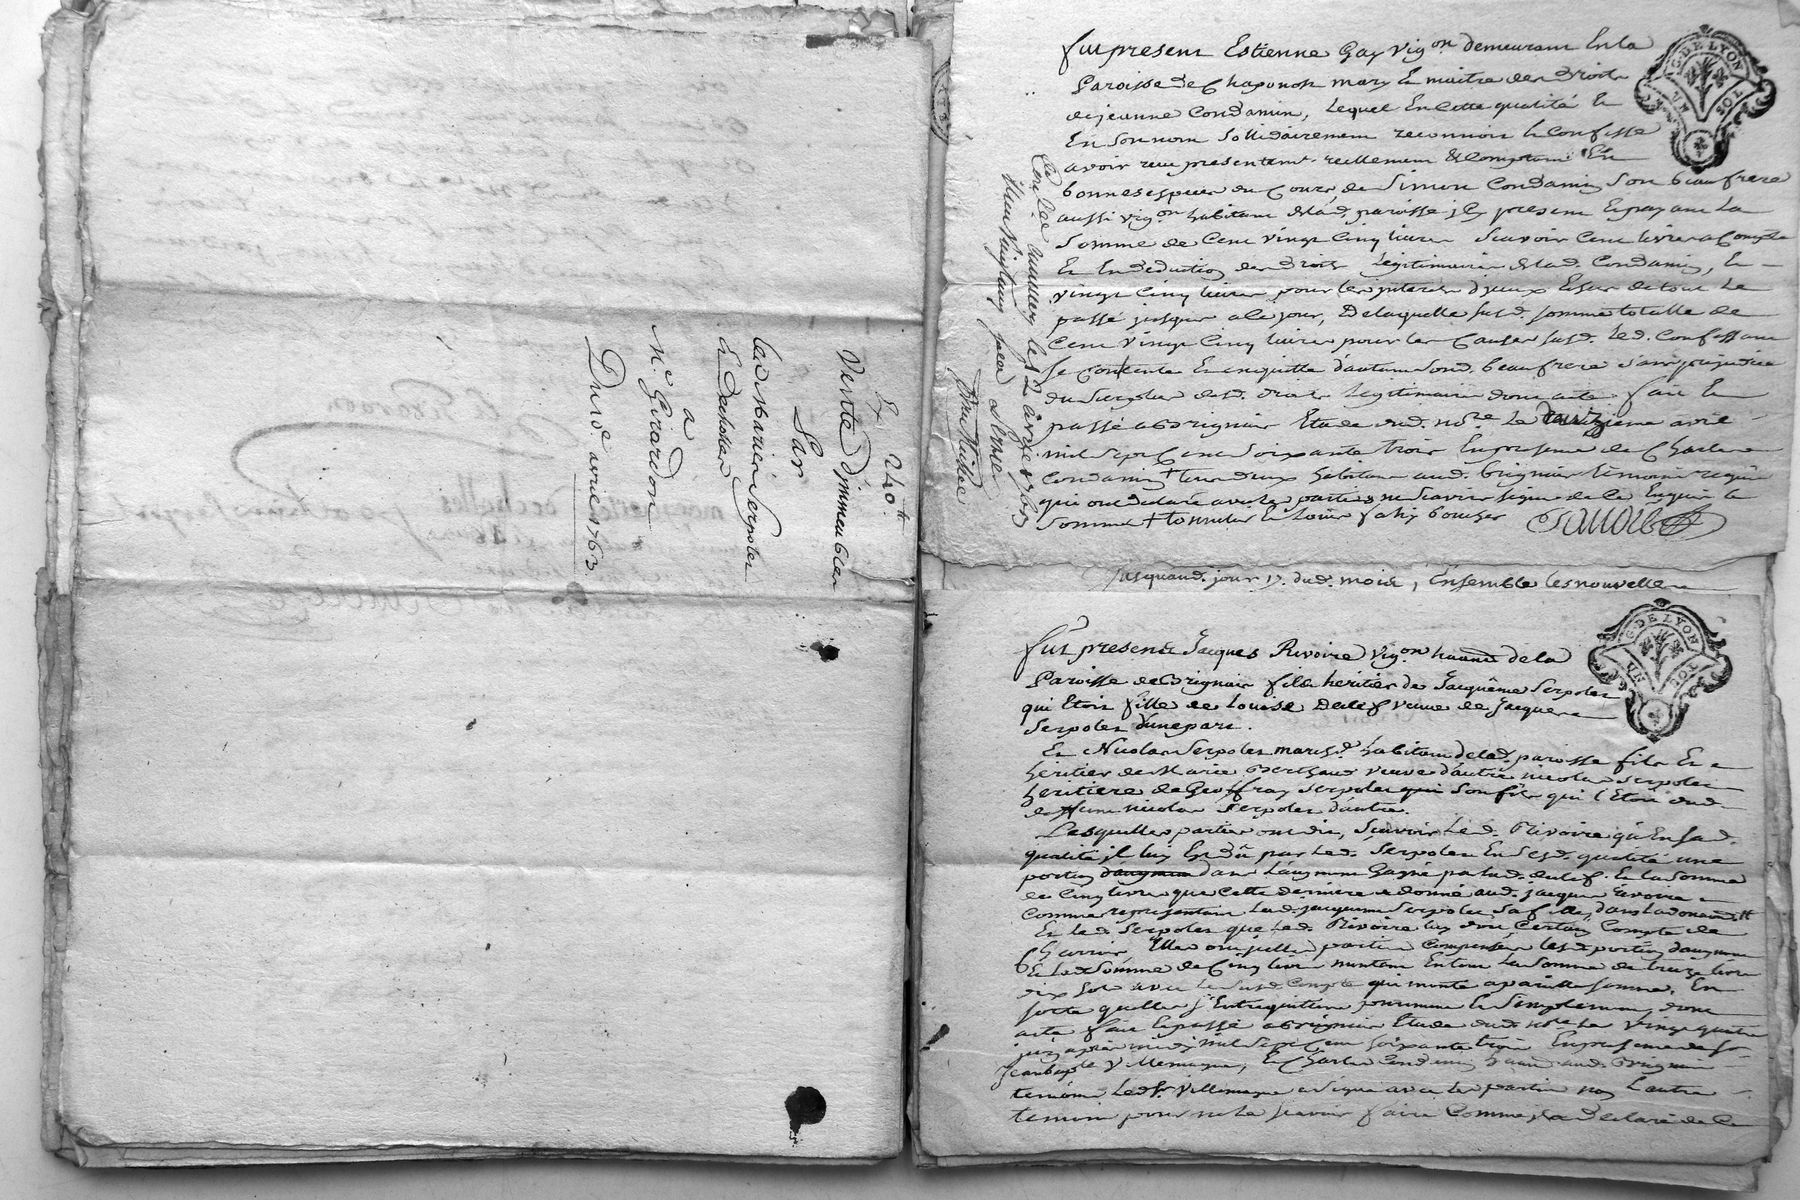 240.tt
Vente d'jmmeubles
Par
lad. Marie Serpolet
et Decholles
a
Me. Girardon
Du 2e. avril 1763
fut present Estienne Gay vig.on demeurant en la
Paroisse de Chaponost mary et maitre des droits
de jeanne Condamin, lequel en cette qualité et
en son nom sollidairement reconnoit et confesse
avoir reçu presentemt. reellement et comptant en
bonnes especes du cours de Simon Condamin son beaufrere
aussi vig.on habitant de lad. paroisse jcy present et payant la
somme de cent vingt cinq livres sçavoir cent livres a compte
et en deduction des droits legitimaires de lad. Condamin, et
vingt cinq livres pour les jnterets d'jceux et sur de tout le
passé jusques a ce jour, de laquelle susd. somme totalle de
cent vingt cinq livres pour les causes susd. led. confessant
se contente et en quitte d'autant sond. beaufrere sans prejudice
du surplus desd. droits legitimaires dont acte fait et
passé a Brignais etude dud. nore. le douzieme avril
mil sept cent soixante trois en presence de Charles
Condamin + tous deux habitans aud. Brignais temoins requis
qui ont declaré avec les parties ne sçavoir signer de ce enquis et
sommés +
jusquaud. jour 17. dud. mois, Ensemble les nouvelles
DE LYON
UN SOL
fut present Jacques Rivoire vig.on habitant de la
Paroisse de Brignais fils heritier de Jacquême Serpolet
qui etoit fille de Louise Delef veuve de Jacques
Serpolet d'une part.
Et Nicolas Serpolet march.d habitant de lad. paroisse fils et
heritier de Marie Berthaud veuve d'autre nicolas Serpolet
heritiere de Geoffray Serpolet son fils qui l'etoit dud.
nicolas Serpolet d'autre.
Lesquelles parties ont dit, sçavoir led. Rivoire qu'en sad.
qualité jl luy est dû par led. Serpolet en sesd. qualité une
portion dans l'augment gagné par lad. delef. et la somme
de cinq livres que cette derniere a donné aud. jacques Rivoire
comme representant lad. jacquême Serpolet sa fille,
Et led. Serpolet que led. Rivoire luy doit certain compte de
la somme de cinq livres montant en tout la somme de treize livres
dix sols avec le susd. compte qui monte a pareille somme, En
sorte qu'elles s'entrequittent purement et simplement, dont
acte fait et passé a Brignais etude dud. nore. le vingt quatre
juin après midy mil sept cent soixante trois en presence de sr.
Jean bapte. Villemagne, et Charles Condamin
temoins led. Sr. Villemagne a signé avec les parties non l'autre
temoin pour ne le sçavoir faire comme jl a declaré de ce
DE LYON
UN SOL